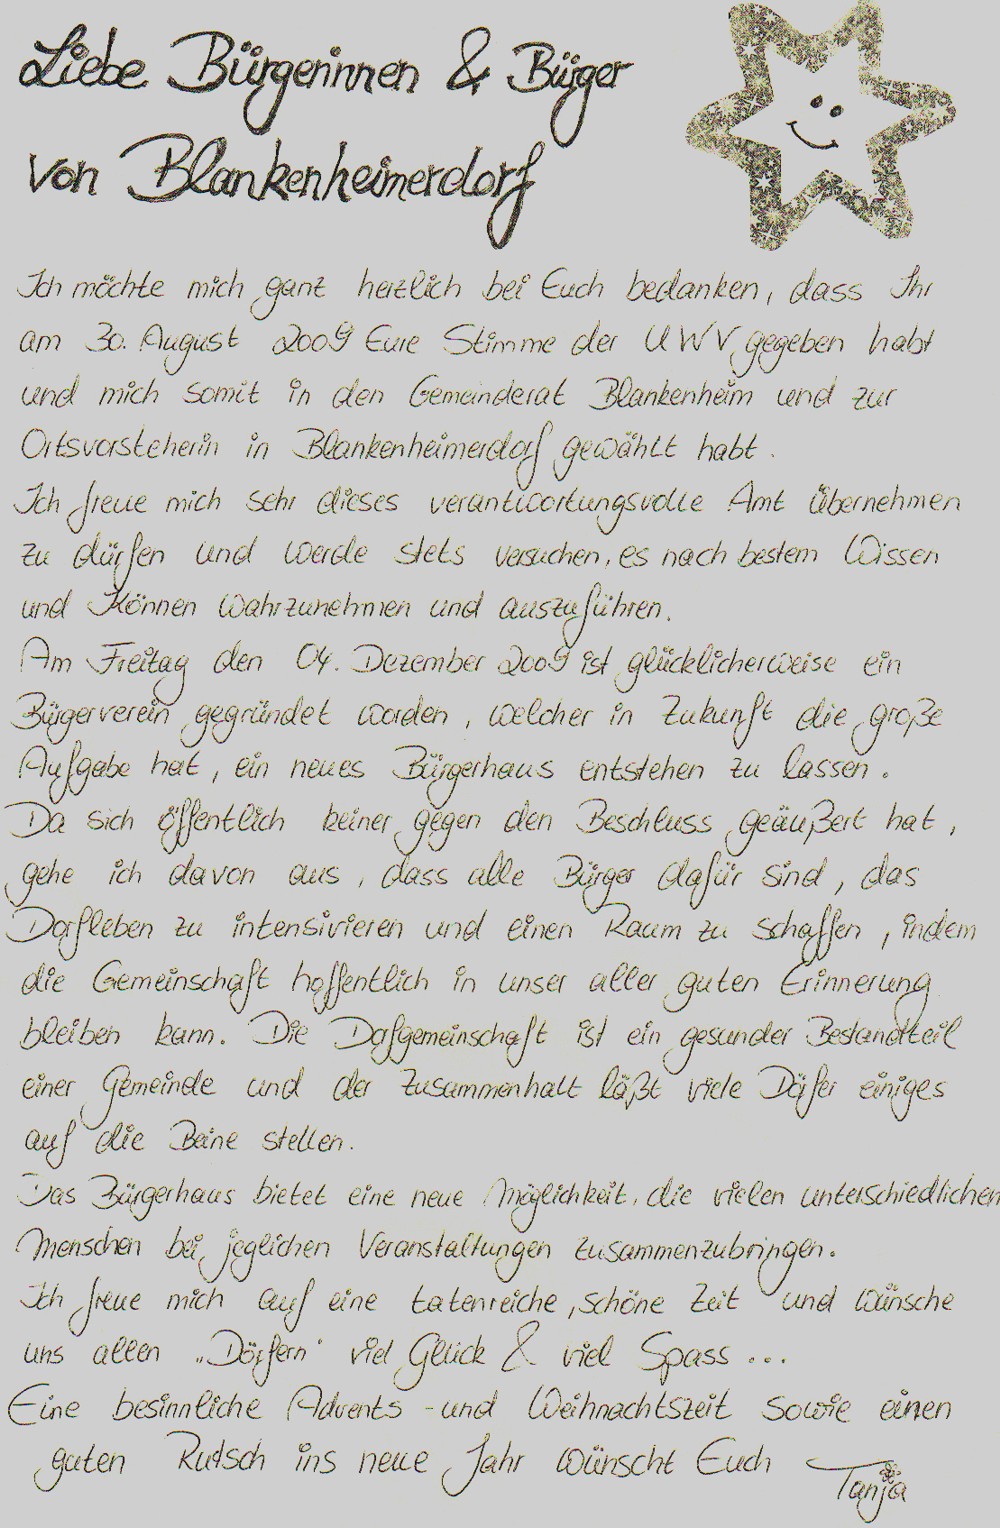 Liebe Bürgerinnen & Bürger
von Blankenheimerdorf
Ich möchte mich ganz herzlich bei Euch bedanken, dass Ihr
am 30. August 2009 Eure Stimme der UWV gegeben habt
und mich somit in den Gemeinderat Blankenheim und zur
Ortsvorsteherin in Blankenheimerdorf gewählt habt.
Ich freue mich sehr dieses verantwortungsvolle Amt übernehmen
zu dürfen und werde stets versuchen, es nach bestem Wissen
und Können wahrzunehmen und auszuführen.
Am Freitag den 04. Dezember 2009 ist glücklicherweise ein
Bürgerverein gegründet worden, welcher in Zukunft die große
Aufgabe hat, ein neues Bürgerhaus entstehen zu lassen.
Da sich öffentlich keiner gegen den Beschluss geäußert hat,
gehe ich davon aus, dass alle Bürger dafür sind, das
Dorfleben zu intensivieren und einen Raum zu schaffen, indem
die Gemeinschaft hoffentlich in unser aller guten Erinnerung
bleiben kann. Die Dorfgemeinschaft ist ein gesunder Bestandteil
einer Gemeinde und der Zusammenhalt läßt viele Dörfer einiges
auf die Beine stellen.
Das Bürgerhaus bietet eine neue Möglichkeit, die vielen unterschiedlichen
Menschen bei jeglichen Veranstaltungen zusammenzubringen.
Ich freue mich auf eine tatenreiche, schöne Zeit und wünsche
uns allen „Dörfern" viel Glück & viel Spass ...
Eine besinnliche Advents - und Weihnachtszeit sowie einen
guten Rutsch ins neue Jahr wünscht Euch Tanja